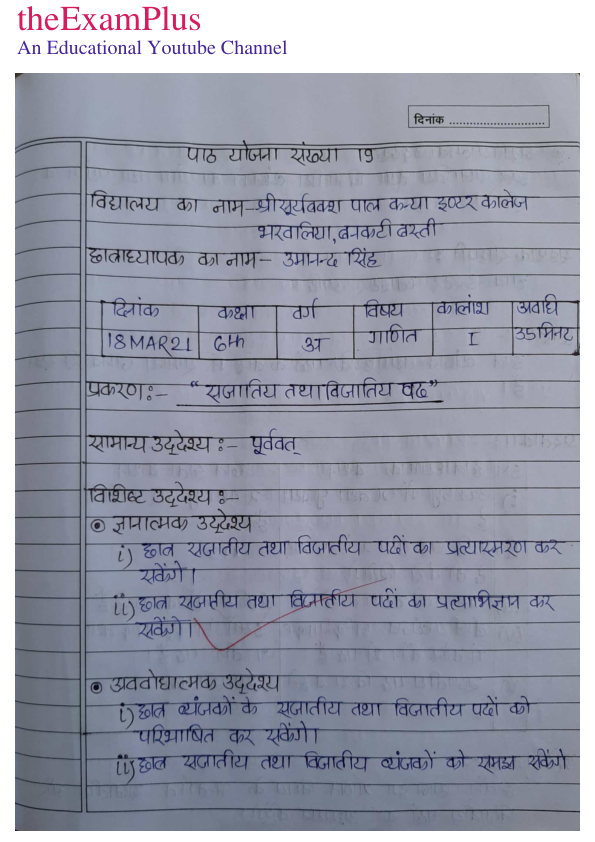 theExamPlus
An Educational Youtube Channel
दिनांक ............................
पाठ योजना संख्या 19
विद्यालय का नाम - श्री सूर्यबक्श पाल कन्या इण्टर कालेज
भरवलिया, बनकटी बस्ती
छात्राध्यापक का नाम - उमानन्द सिंह
दिनांक कक्षा वर्ग विषय कालांश अवधि
18 MAR 21 6th अ गणित I 35 मिनट
प्रकरण :- " सजातिय तथा विजातिय पद"
सामान्य उद्देश्य :- पूर्ववत्
विशिष्ट उद्देश्य :-
ज्ञानात्मक उद्देश्य
i) छात्र सजातीय तथा विजातीय पदों का प्रत्यास्मरण कर
सकेंगे।
ii) छात्र सजातीय तथा विजातीय पदों का प्रत्याभिज्ञान कर
सकेंगे।
अवबोधात्मक उद्देश्य
i) छात्र व्यंजकों के सजातीय तथा विजातीय पदों को
परिभाषित कर सकेंगे।
ii) छात्र सजातीय तथा विजातीय व्यंजकों को समझ सकेंगे